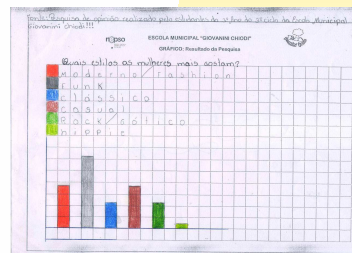 Fonte: Pesquisa de opinião realizada pelos estudantes do 3º Ano do 3º Ciclo da Escola Municipal
Giovanini Chiodi!!!
nepso
ESCOLA MUNICIPAL "GIOVANINI CHIODI"
GRÁFICO: Resultado da Pesquisa
Quais estilos as mulheres mais gostam?
Moderno/Fashion
Funk
Clássico
Casual
Rock/Gótico
Hippie